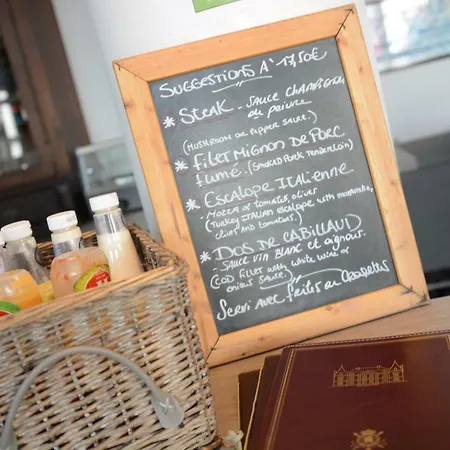 SUGGESTIONS A' 17,50€
* STEAK - SAUCE CHAMPIGNON
ou poivre
(MUSHROOM OR PEPPER SAUCE.)
* Filet MIGNON DE PORC
fumé. (SMOKED PORK TENDERLOIN)
* ESCALOPE ITALIENNE
- MOZZA et tomates, olives
(TURKEY ITALIAN ESCALOPE with mozzarella,
olives and tomatoes.)
* DOS DE CABILLAUD
- SAUCE VIN BLANC et oignons.
(COD FILLET with white wine or
onions SAUCE)
Servi AVEC frites ou CROQUETTES